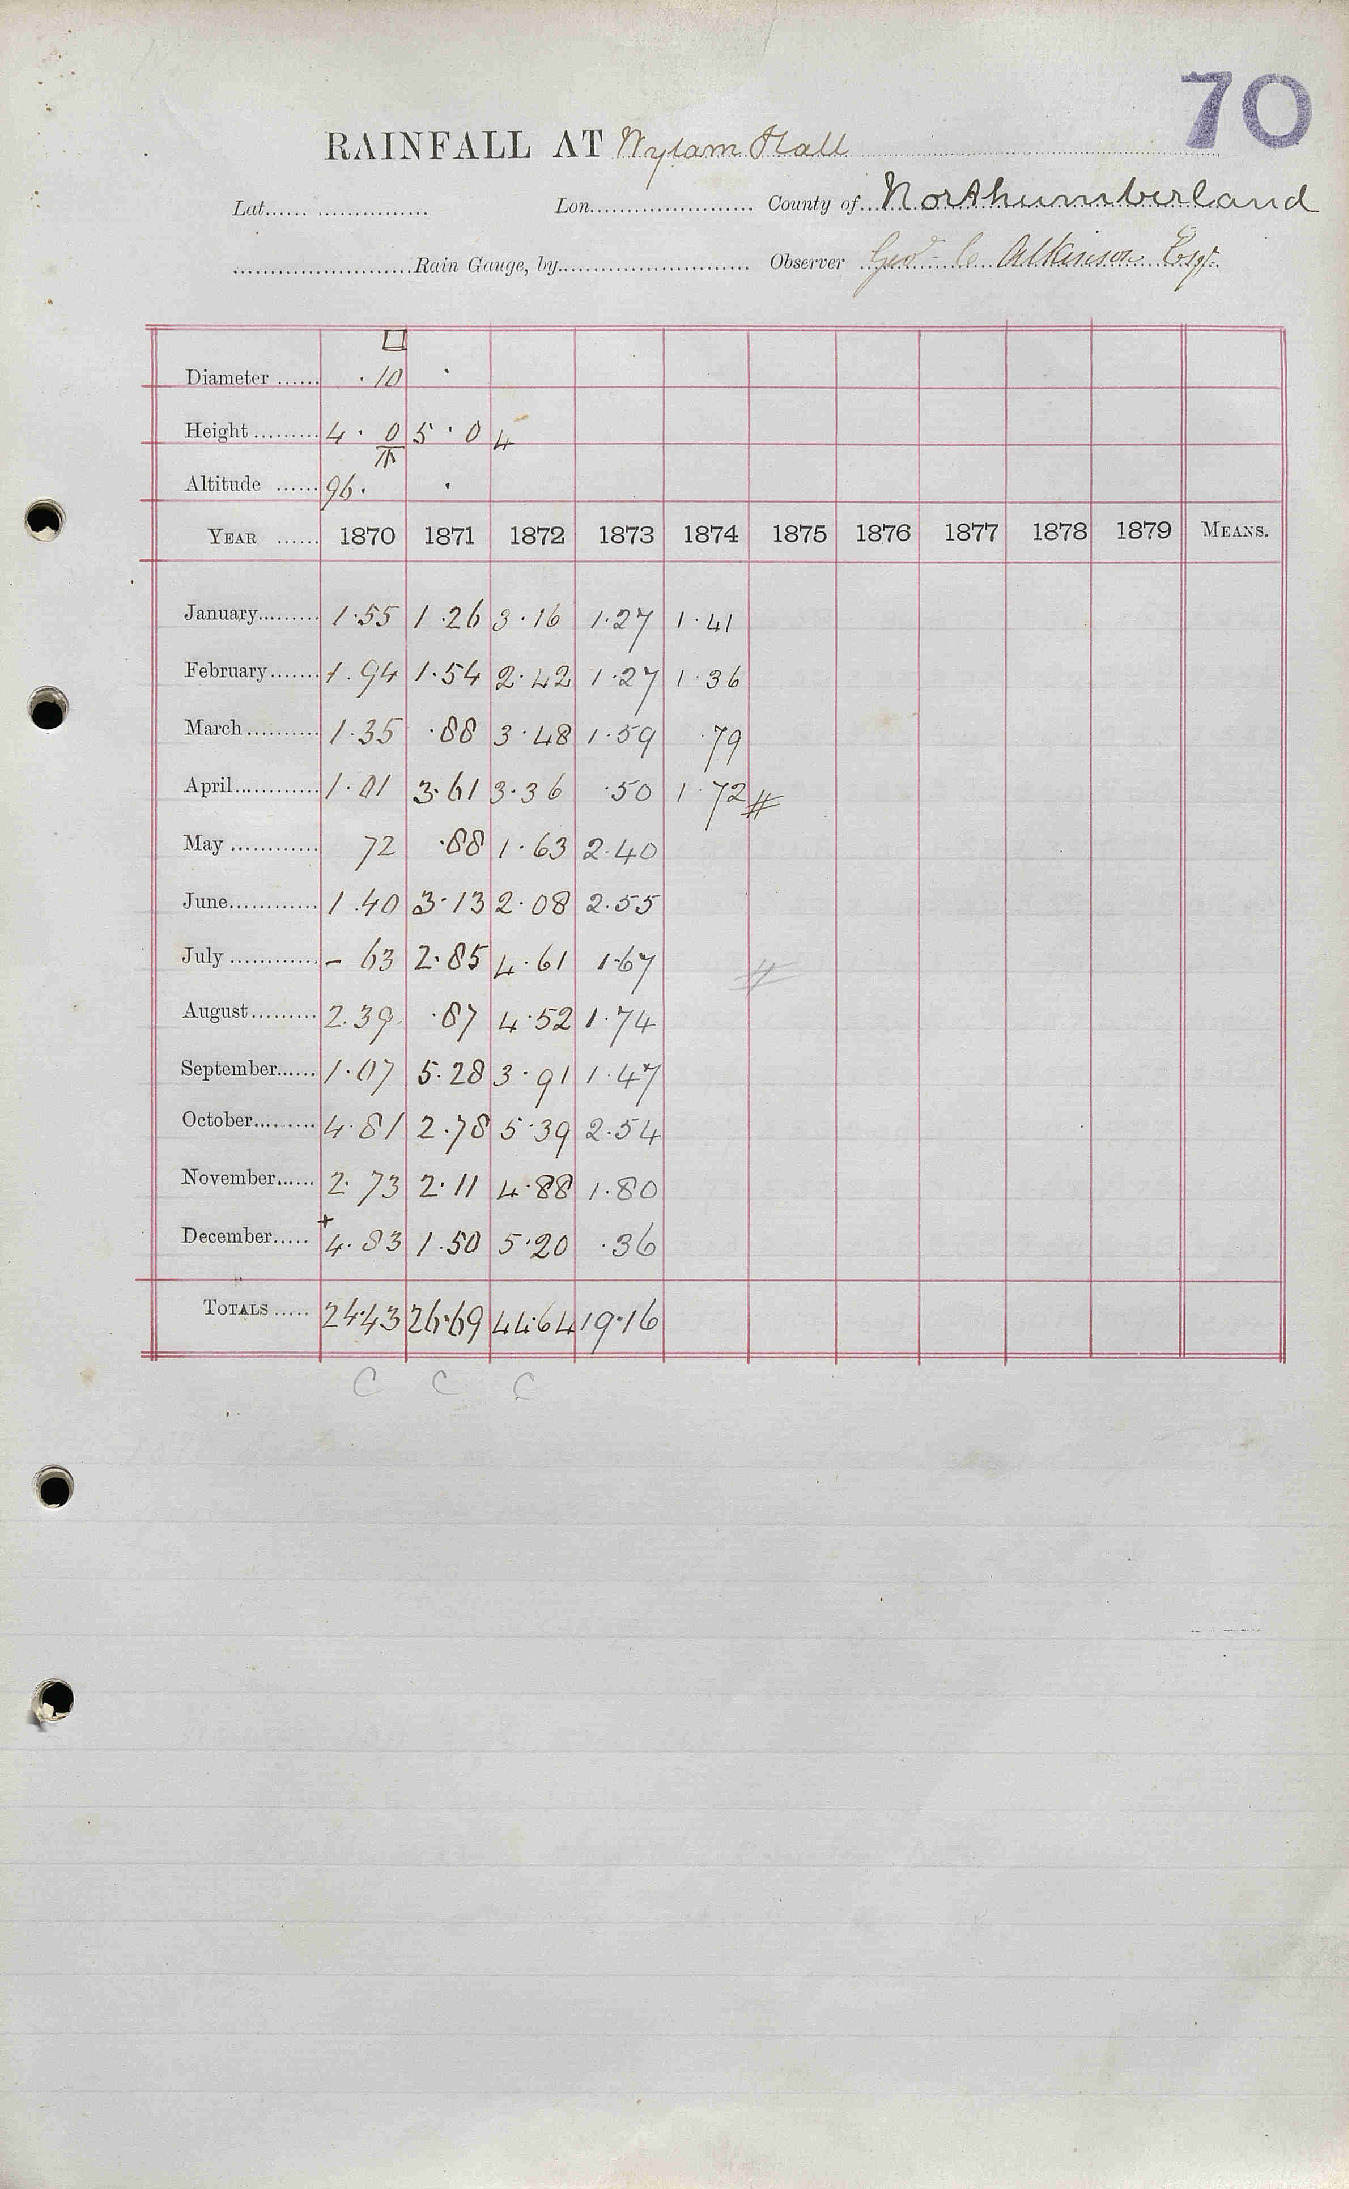 70
RAINFALL AT Wylam Hall
Lat. Lon. County of Northumberland
Rain Gauge, by Observer Geo C Atkinson Esqr.
Diameter ·10 ·
Height 4·0 5·0 4
Altitude 96· ·
YEAR 1870 1871 1872 1873 1874 1875 1876 1877 1878 1879 MEANS.
January 1·55 1·26 3·16 1·27 1·41
February 1·94 1·54 2·42 1·27 1·36
March 1·35 ·88 3·48 1·59 ·79
April 1·01 3·61 3·36 ·50 1·72 #
May 72 ·88 1·63 2·40
June 1·40 3·13 2·08 2·55
July - 63 2·85 4·61 1·67 #
August 2·39 ·87 4·52 1·74
September 1·07 5·28 3·91 1·47
October 4·81 2·78 5·39 2·54
November 2·73 2·11 4·88 1·80
December + 4·83 1·50 5·20 ·36
TOTALS 24·43 26·69 44·64 19·16
C C C